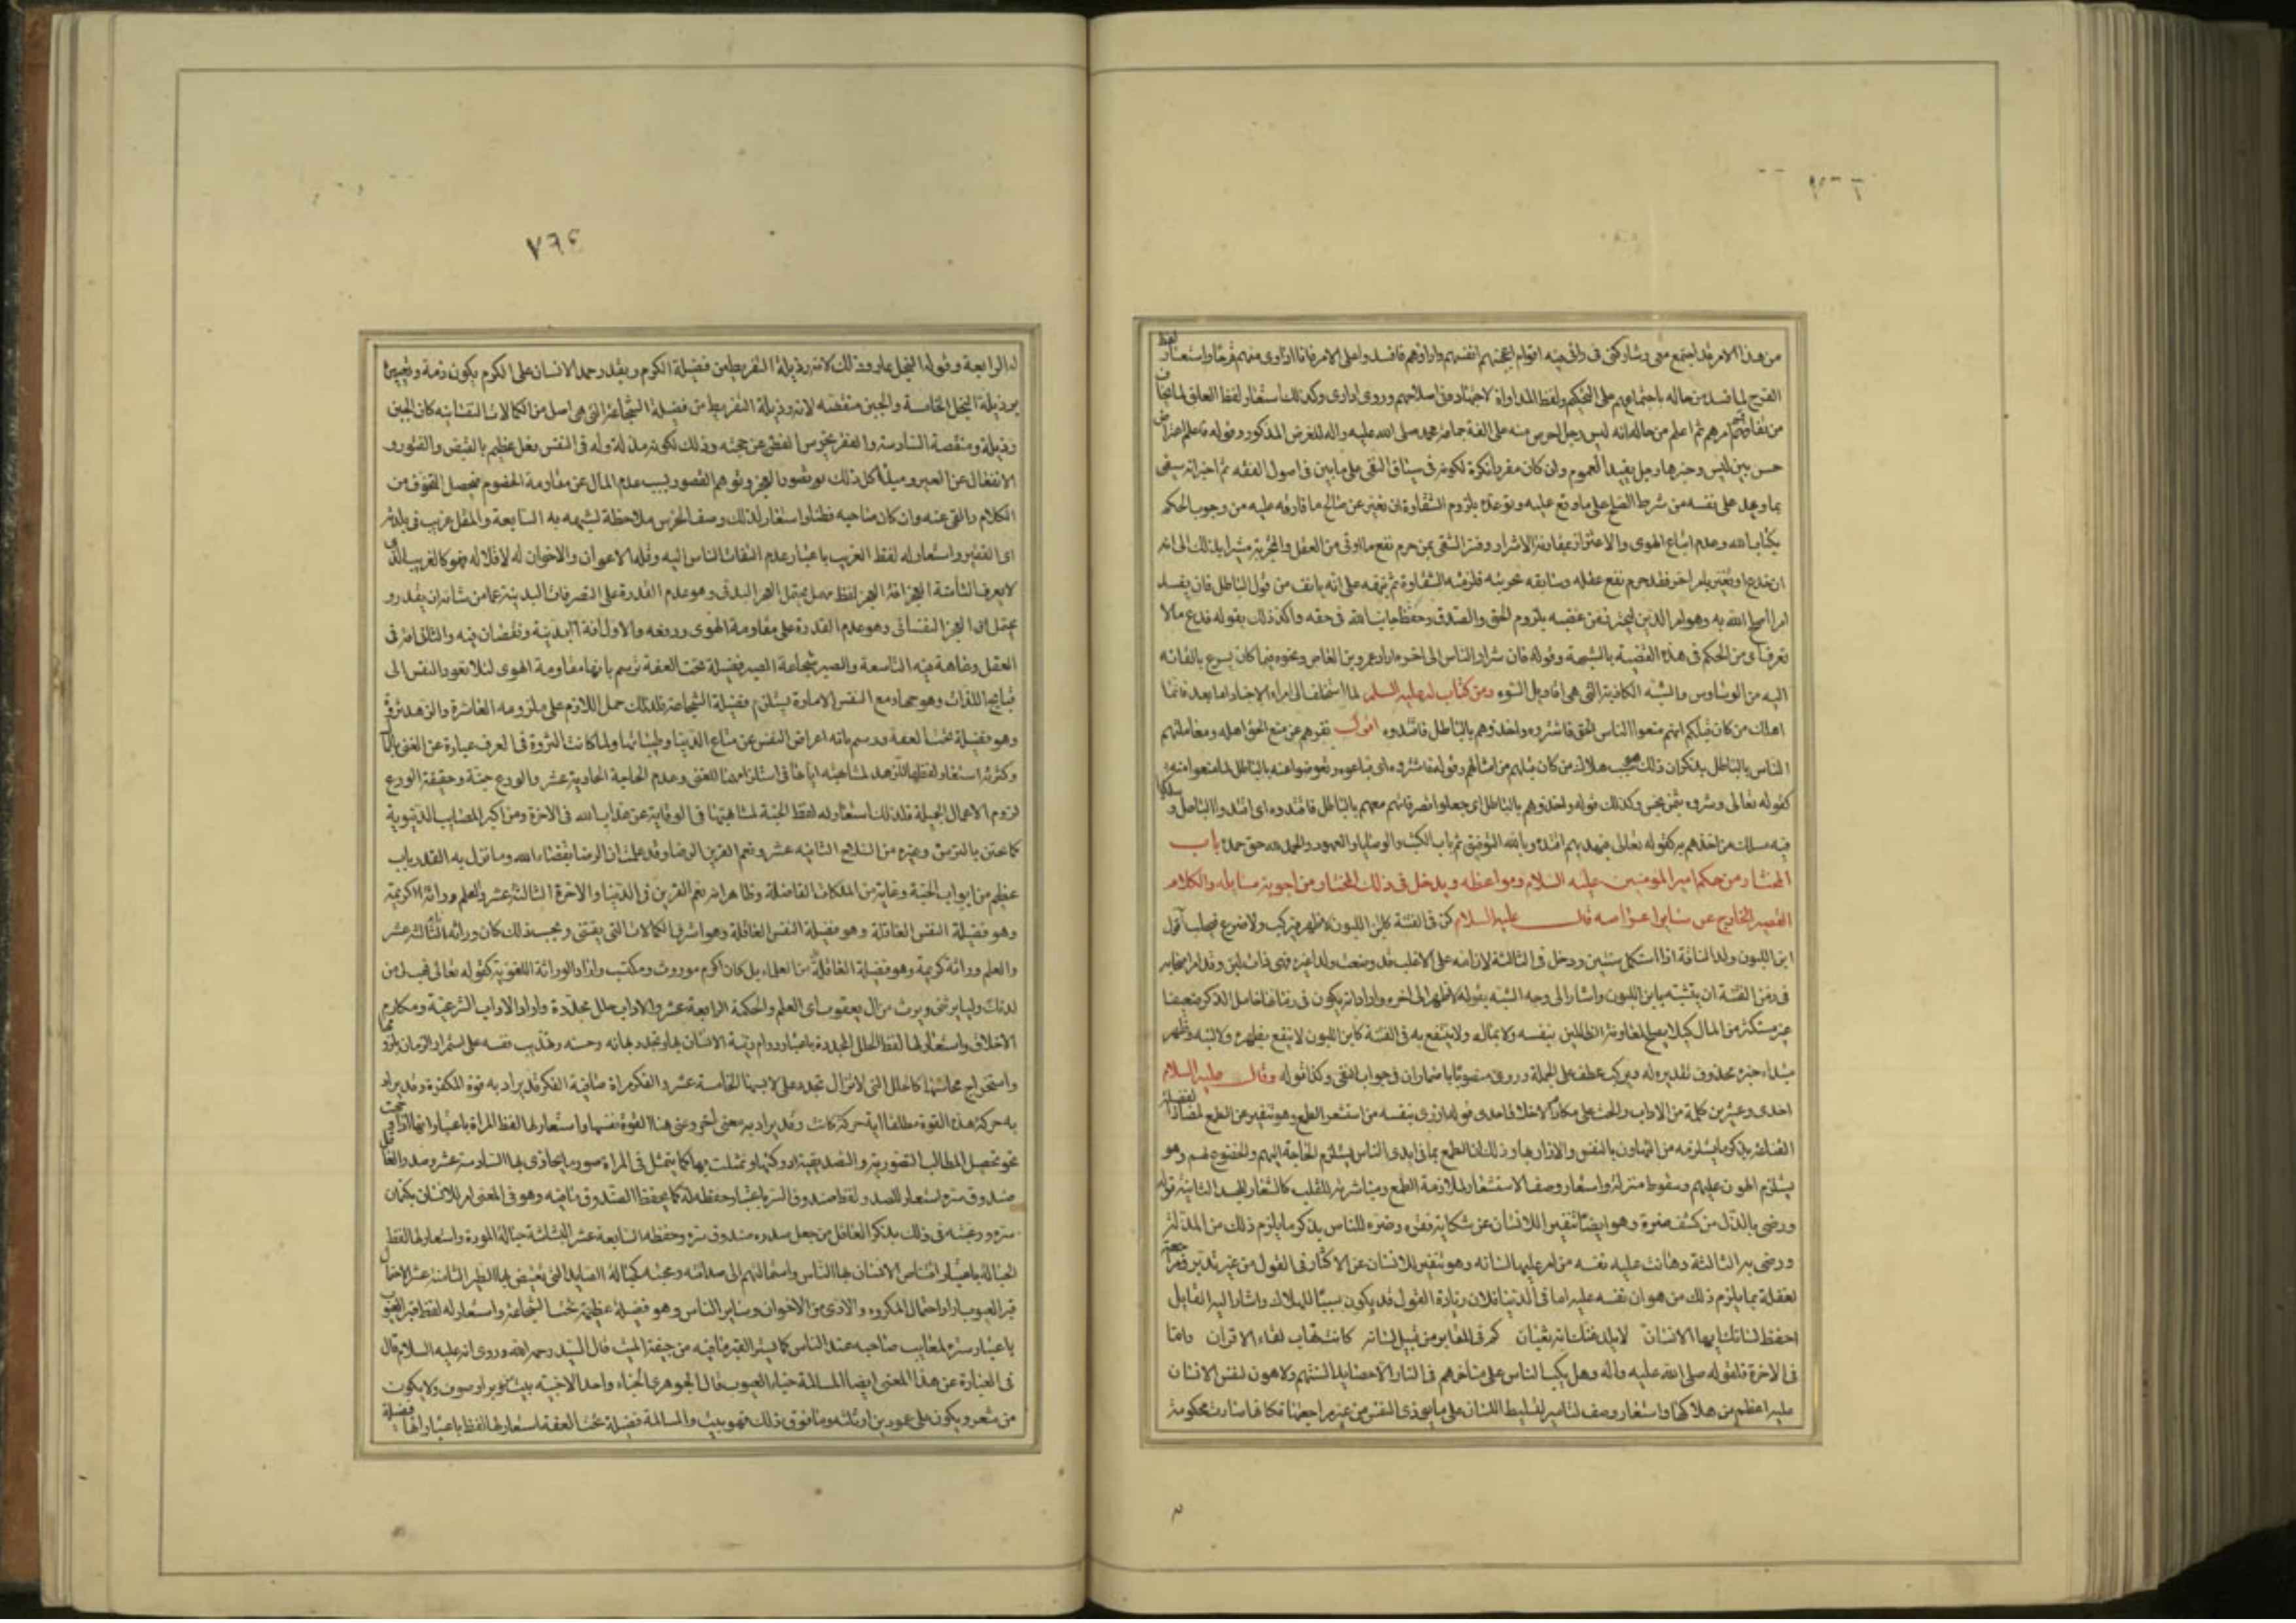 من هذا الامر قد اجتمع معى وشاركنى فى راى فيه اقوام اعجبتهم انفسهم وارادوهم فافسدوا على الامر فانا اداوى منهم قرحا واستعار لفظ
القرح لما فسد من حاله باجتماعهم على التحكيم ولفظ المداواة لاجتهاده فى اصلاحهم وروى ادارى وكذلك استعار لفظ العلق لما يخاف
من تفاقم امرهم ثم اعلم من حاله انه ليس رجل احرص منه على الفة جماعة محمد صلى الله عليه واله للغرض المذكور وقوله فاعلم اعتراض
حسن بين ليس وخبرها ورجل يفيد العموم وان كان مفردا نكرة لكونه فى سياق النفى على ما بين فى اصول الفقه ثم اخبر انه سيفى
بما وعد على نفسه من شرط الصلح على ما وقع عليه وتوعده بلزوم الشقاوة ان تغير عن صالح ما فارقه عليه من وجوب الحكم
بكتاب الله وعدم اتباع الهوى والاغترار بمقارنة الاشرار وفسر الشقى بمن حرم نفع ما اوتى من العقل والتجربة مشيرا بذلك الى انه
ان خدع او تغير بامر اخر فقد حرم نفع عقله وسابقه تجربته فلزمته الشقاوة ثم نبهه على انه يانف من قول الباطل فان يفسد
امرا اصلح الله به وهو امر الدين ليحترز من غضبه بلزوم الحق والصدق وحفظ جانب الله فى حقه واكد ذلك بقوله فدع مالا
تعرف اى من الحكم فى هذه القضية بالشبهة وقوله فان شرار الناس الى اخره اراد عمرو بن العاص ونحوه فيما كان يسرع بالقائه
اليه من الوساوس والشبه الكاذبة التى هى اقاويل السوء ومن كتاب له عليه السلم لما استخلف الى امراء الاجناد اما بعد فانما
اهلك من كان قبلكم انهم منعوا الناس الحق فاشتروه واخذوهم بالباطل فاقتدوه اقول نفرهم عن منع الحق اهله ومعاملتهم
الناس بالباطل بذكر ان ذلك سبب هلاك من كان قبلهم من امثالهم وقوله فاشتروه اى فباعوه وتعوضوا عنه بالباطل لما منعوا منه
كقوله تعالى وشروه بثمن بخس وكذلك قوله واخذوهم بالباطل اى جعلوا تصرفاتهم معهم بالباطل فاقتدوه اى اقتدوا الباطل وسلكوا
فيه مسلك من اخذهم به كقوله تعالى فبهديهم اقتده وبالله التوفيق تم باب الكتب والوصايا والعهود والحمد لله حق حمده باب
المختار من حكم امير المومنين عليه السلام ومواعظه ويدخل فى ذلك المختار من اجوبة مسايله والكلام
القصير الخارج عن ساير اغراضه قال عليه السلام كن فى الفتنة كابن اللبون لا ظهر فيركب ولا ضرع فيحلب اقول
ابن اللبون ولد الناقة اذا استكمل سنتين ودخل فى الثالثة لان امه على الاغلب قد وضعت ولدا غيره فهى ذات لبن
فى زمن الفتنة ان يتشبه بابن اللبون واشار الى وجه الشبه بقوله لا ظهر الى اخره واراد انه يكون فى زمانها خامل الذكر ضعيفا
غير مستكثر من المال كيلا يصلح لمعاونة الظالمين بنفسه ولا بماله ولا ينتفع به فى الفتنة كابن اللبون لا ينفع بظهره ولا لبنه وظهر
مبتداء خبره محذوف تقديره له وفيركب عطف على الجملة وروى منصوبا باضمار ان فى جواب النفى وكذا قوله وقال عليه السلام
احدى وعشرين كلمة من الاداب والحث على مكارم الاخلاق احدى قوله ازرى بنفسه من استشعر الطمع وهو تنفير عن الطمع المضاد لفضيلة
القناعة بذكر ما يستلزمه من التهاون بالنفس والازراء بها وذلك ان الطمع بما فى ايدى الناس يستلزم الحاجة اليهم والخضوع لهم وهو
يستلزم الهون عليهم وسقوط منزلته واستعار وصف الاستشعار لملازمة الطمع ومباشرته للقلب كالشعار للجسد الثانية قوله
ورضى بالذل من كشف ضره وهو ايضا تنفير للانسان عن شكاية فقره وضره للناس بذكر ما يلزم ذلك من المذلة
ورضى به الثالثة وهانت عليه نفسه من امر عليها لسانه وهو تنفير للانسان عن الاكثار فى القول من غير تدبر ومراجعة
لعقله بما يلزم ذلك من هوان نفسه عليه اما فى الدنيا فلان زيادة القول قد يكون سببا للهلاك واشار اليه القايل
احفظ لسانك ايها الانسان لا يلدغنك انه ثعبان كم فى المقابر من قتيل لسانه كانت تهاب لقاء الاقران واما
فى الاخرة فلقوله صلى الله عليه واله وهل يكب الناس على مناخرهم فى النار الا حصايد السنتهم ولا هون لنفس الانسان
عليه اعظم من هلاكها واستعار وصف التامير لتسليط اللسان على ما يوذى النفس من غير مراجعتها فكانها صارت محكومة
٧٦٤
له الرابعة وقوله البخل عار وذلك لانه رذيلة التفريط من فضيلة الكرم وبقدر حمد الانسان على الكرم يكون ذمه وتعييره
برذيلة البخل الخامسة والجبن منقصة لانه رذيلة التفريط من فضيلة الشجاعة التى هى اصل من الكمالات النفسانية كان الجبن
رذيلة ومنقصة السادسة والفقر يخرس الفطن عن حجته وذلك لكونه مذلة وله فى النفس فعل عظيم بالقبض والفتور و
الانفعال عن الغير ومبداء كل ذلك هو تصور العجز وتوهم القصور بسبب عدم المال عن مقاومة الخصوم فيحصل الخوف من
الكلام والعى عنه وان كان صاحبه فطنا واستعار لذلك وصف الخرس ملاحظة لشبهه به السابعة والمقل غريب فى بلدته
اى الفقير واستعار له لفظ الغريب باعتبار عدم التفات الناس اليه وقلة الاعوان والاخوان له لاقلاله فهو كالغريب الذى
لا يعرف الثامنة العجز افة العجز لفظ مهمل يحتمل العجز البدنى وهو عدم القدرة على التصرفات البدنية عما من شانه ان يقدر و
يحتمل العجز النفسانى وهو عدم القدرة على مقاومة الهوى ودفعه والاول افة بدنية ونقصان فيه والثانى افة فى
العقل وعاهة فيه التاسعة والصبر شجاعة الصبر فضيلة تحت العفة ترسم بانها مقاومة الهوى لئلا يقود النفس الى
قبايح اللذات وهو جهاد مع النفس الامارة يستلزم فضيلة الشجاعة فلذلك حمل اللازم على ملزومه العاشرة والزهد ثروة
وهو فضيلة تحت العفة ورسم بانه اعراض النفس عن متاع الدنيا وطيباتها ولما كانت الثروة فى العرف عبارة عن الغنى بالمال
وكثرته استعار لفظها للزهد لمشابهته اياها فى استلزامهما للغنى وعدم الحاجة الحادية عشر والورع جنة وحقيقة الورع
لزوم الاعمال الجميلة فلذلك استعار له لفظ الجنة لمشابهتها فى الوقاية عن عذاب الله فى الاخرة ومن اكبر المصايب الدنيوية
كما يحتمى بالترس وغيره من السلاح الثانيه عشر ونعم القرين الرضا وقد علمت ان الرضا بقضاء الله وما نزل به القدر باب
عظيم من ابواب الجنة وغاية من الملكات الفاضلة وظاهر انه نعم القرين فى الدنيا والاخرة الثالثة عشر والعلم وراثة كريمة
وهو فضيلة النفس العاقلة وهو اشرف الكمالات التى يقتنى وبحسب ذلك كان وراثة الثالثه عشر
والعلم وراثة كريمة وهو فضيلة العاقلة من العلماء بل كان اكرم موروث ومكتسب واراد الوراثة المعنوية كقوله تعالى فهب لى من
لدنك وليا يرثنى ويرث من ال يعقوب اى العلم والحكمة الرابعة عشر والاداب حلل مجددة واراد الاداب الشرعية ومكارم
الاخلاق واستعار لها لفظ الحلل المجددة باعتبار دوام زينة الانسان بها وتجدد بهائه وحسنه وتهذيب نفسه على استمرار الزمان
واستخراج محاسنها كالحلل التى لا تزال تجدد على لابسها الخامسة عشر والفكر مراة صافية الفكر قد يراد به قوة المفكرة وقد يراد
به حركة هذه القوة مطلقا اية حركة كانت وقد يراد به معنى اخر وعنى هنا القوة نفسها واستعار لها لفظ المراة باعتبار انها اذا وجهت
نحو تحصيل المطالب التصورية والتصديقية ادركتها وتمثلت بها كما يتمثل فى المراة صور ما يحاذى بها السادسة عشر وصدر العاقل
صندوق سره استعار للصدر لفظ صندوق السر باعتبار حفظه له كما يحفظ الصندوق ما فيه وهو فى المعنى امر للانسان بكتمان
سره ورغبته فى ذلك بذكر العاقل من جعل صدره صندوق سره وحفظه السابعة عشر البشاشة حبالة المودة واستعار لها لفظ
الحبالة باعتبار اقتناص الانسان بها الناس واستمالتهم الى صداقته ومحبته كحبالة الصايد التى يقتنص بها الطير الثامنة عشر الاحتمال
قبر العيوب اراد احتمال المكروه والاذى من الاخوان وساير الناس وهو فضيلة عظيمة تحت الشجاعة واستعار له لفظ قبر العيوب
باعتبار ستره لمعايب صاحبه عند الناس كما يستر القبر ما فيه من جيفة الميت قال السيد رحمه الله وروى انه عليه السلام قال
فى العبارة عن هذا المعنى ايضا المسالمة خباء العيوب قال الجوهرى الخباء واحد الاخبية بيت من وبر او صوف ولا يكون
من شعر ويكون على عمودين او ثلثه وما فوق ذلك فهو بيت والمسالمة فضيلة تحت العفة استعار لها لفظ باعتبار انها فضيلة